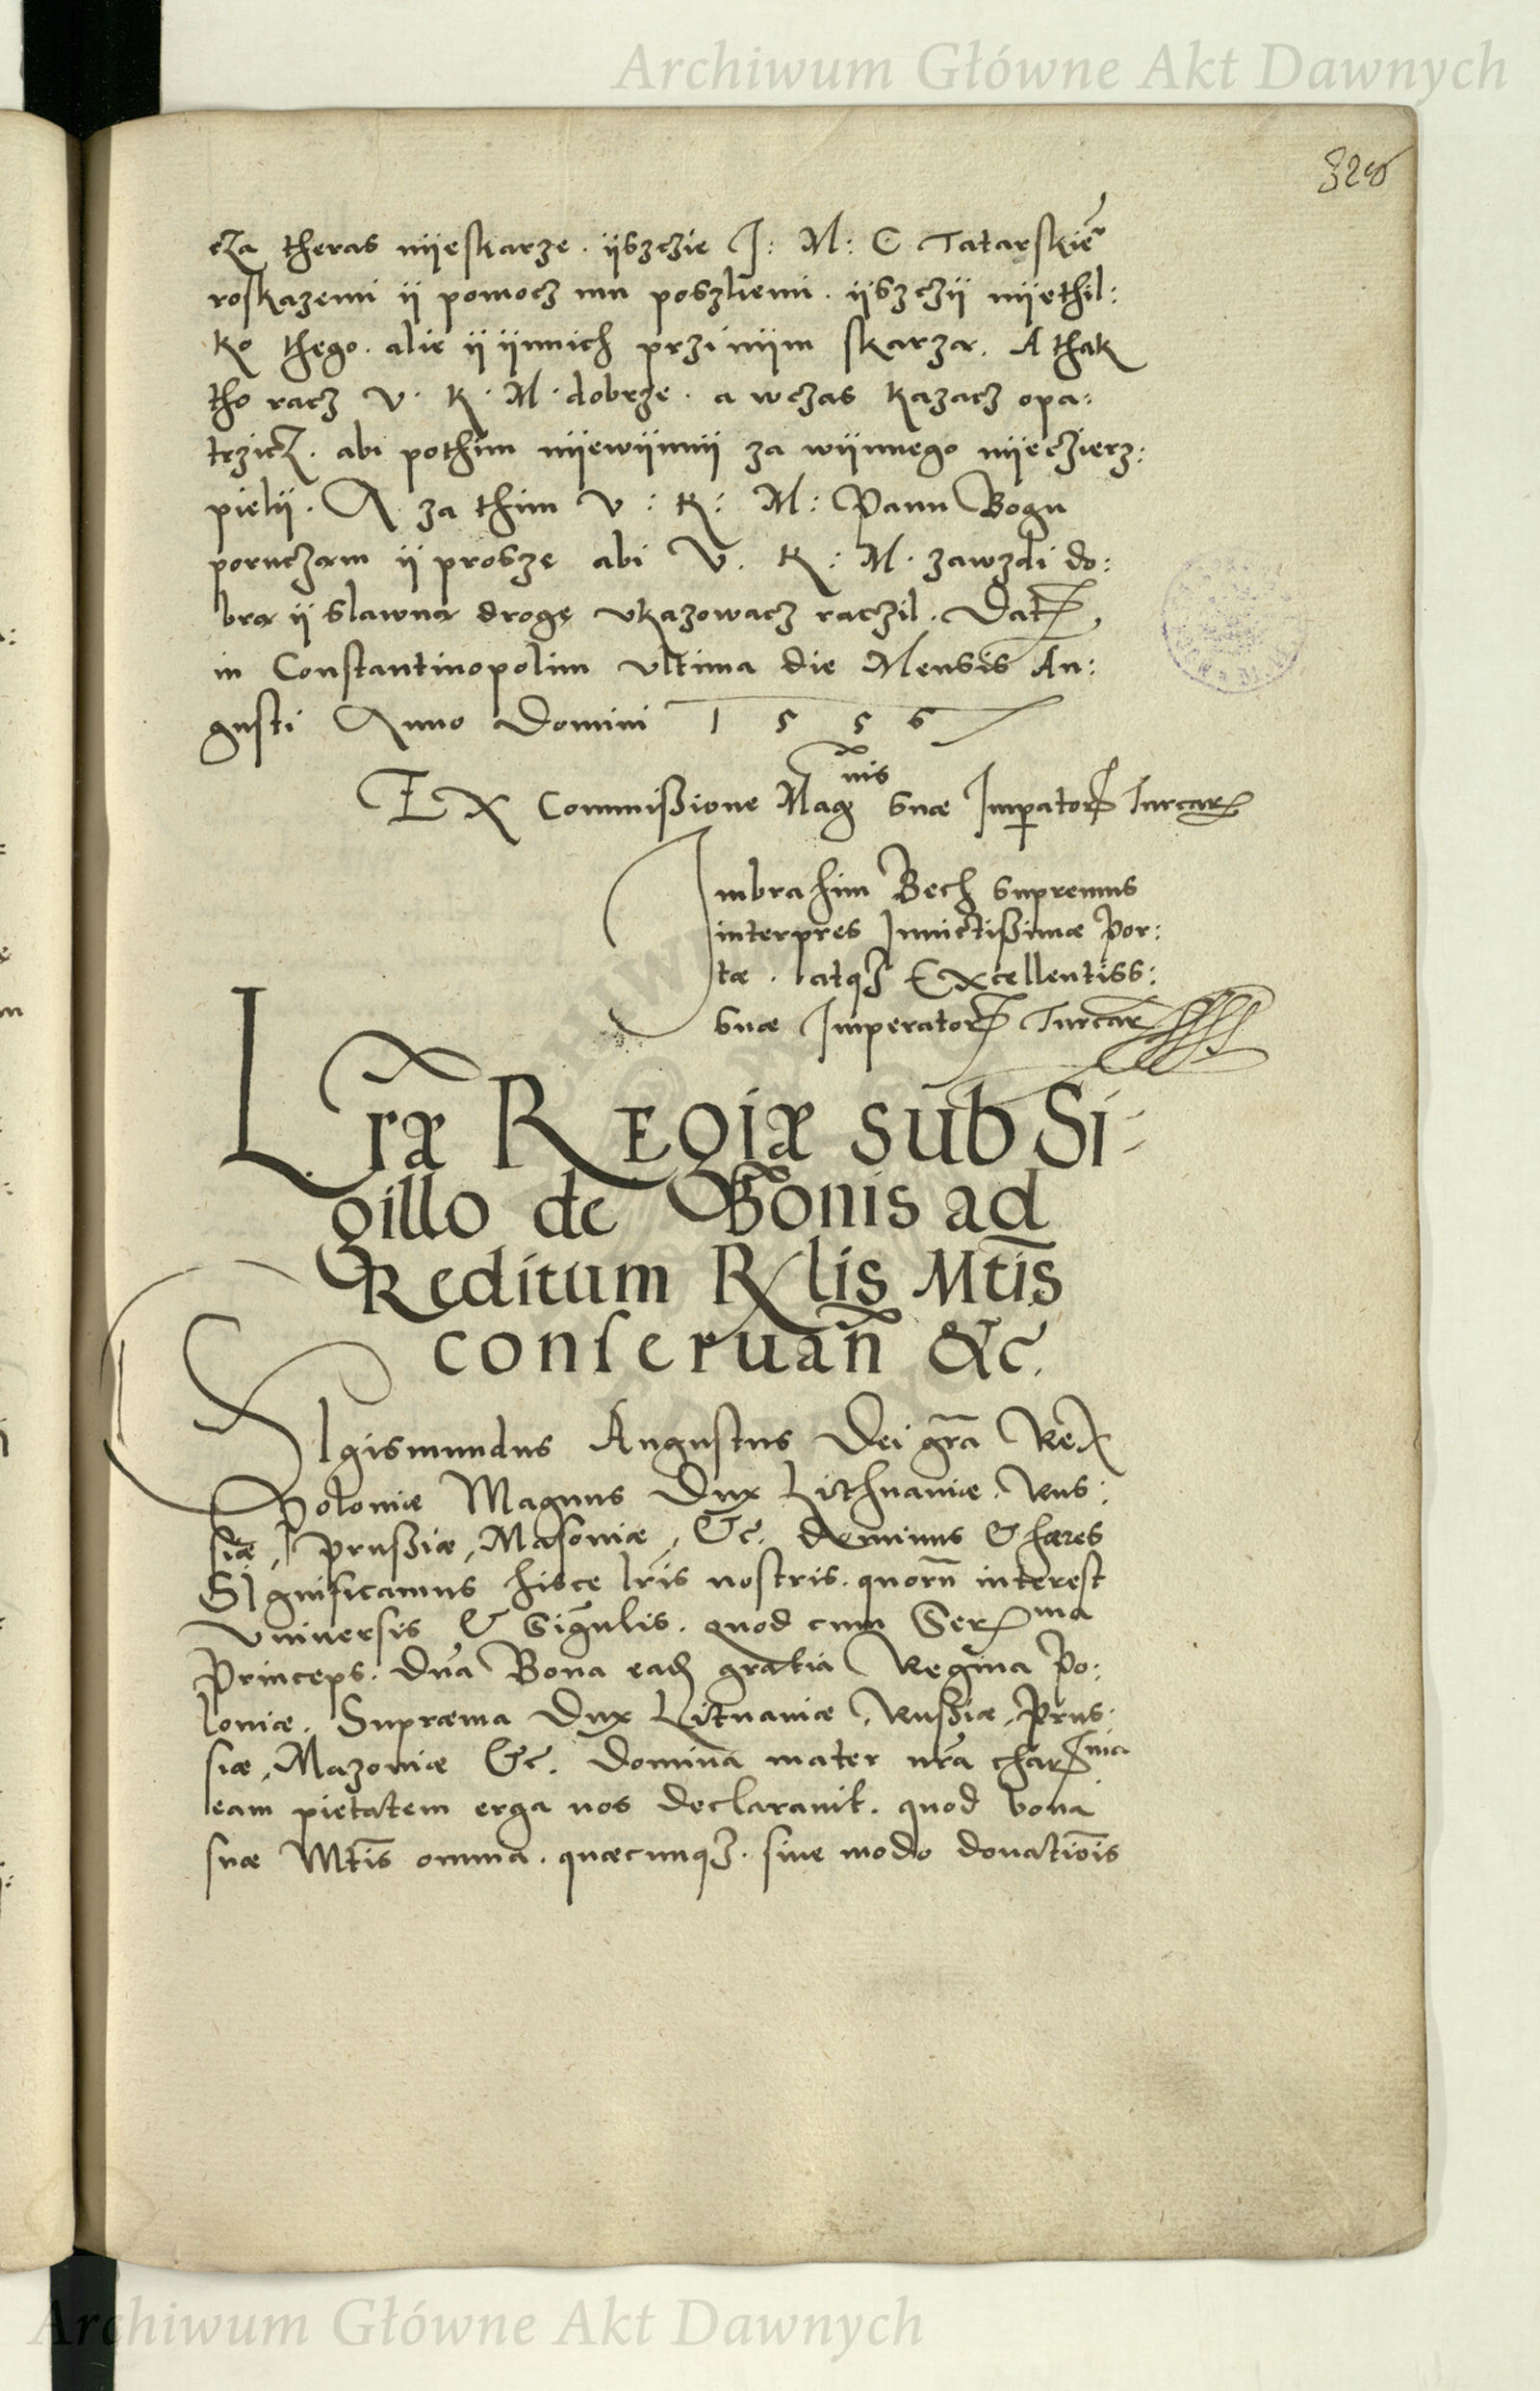 Archiwum Główne Akt Dawnych
cza theras nijeskarze. ijszczie J: M: C Tatarskie͂
roskazemi ij pomocz mu poszliemi. ijszczij nijethil:
ko thego. alie ij ijnnich przi nijm skarzą. A thak
tho racz V. K. M. dobrze. a wczas kazacz opa:
trzicz. abi pothim nijewijnnij za wijnnego nijeczierz:
pielij. A za thim V: K: M: Panu Bogu
poruczam ij proszę abi V. K: M. zawzdi do:
brą ij slawną drogę vkazowacz raczil. Dat
in Constantinopolim vltima die Mensis Au:
gusti Anno Domini 1 5 5 6
EX Commißione Mag nis suæ Imꝑator Turcar
Imbrahim Bech supremus
interpres Inuictißimæ Por:
tæ. atqȝ Excellentiss:
suæ Imperator Turcar
Lr̃æ REgiæ sub Si:
gillo de Bonis ad
Reditum R lis Mtis̃
conseruañ &c̃.
SIgismundus Augustus Dei gr̃a Rex
Poloniæ Magnus Dux Lithuaniæ. Rus:
siæ, Prußiæ, Masoniæ, &c̃. dominus & hæres
SIgnificamus hisce lr̃is nostris. quorũ interest
Vniuersis & singulis. quod cum Ser ma
Princeps. Dña Bona ead gratia Regina Po:
loniæ. Supræma Dux Lituaniæ, Rußiæ, Prus:
siæ, Mazoniæ &c̃. Domina mater nr̃a char ma
eam pietatem erga nos declarauit. quod bona
suæ Mtis̃ omnia. quæcunqȝ. siue modo donatiois̃
Archiwum Główne Akt Dawnych